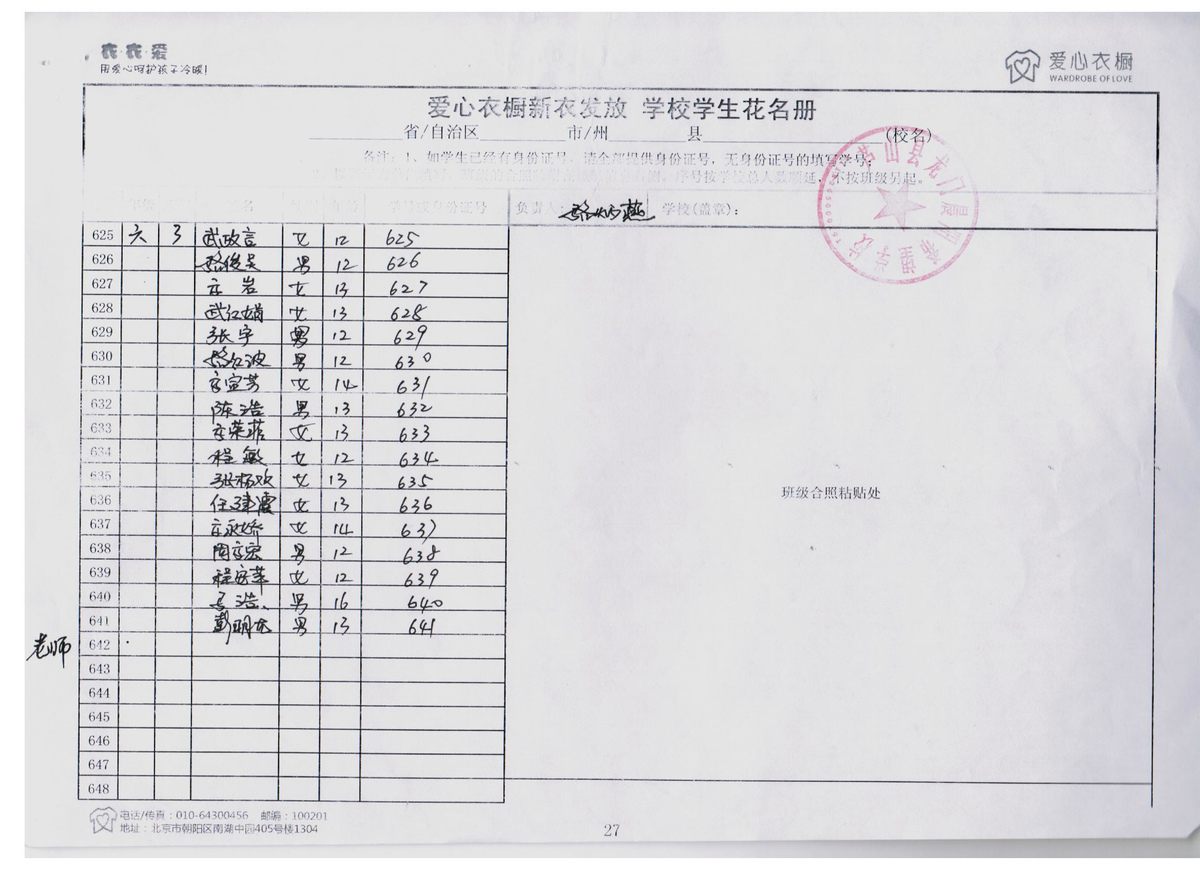 衣·衣·爱
用爱心呵护孩子冷暖!
爱心衣橱
WARDROBE OF LOVE
爱心衣橱新衣发放 学校学生花名册
省/自治区 市/州 县 (校名)
备注:1、如学生已经有身份证号,请全部提供身份证号,无身份证号的填写学号;
序号按学校总人数顺延,不按班级另起。
学号或身份证号 负责人: 燕 学校(盖章):
芦山县龙门 希望学校
625 六 3 武政言 女 12 625
626 骆俊吴 男 12 626
627 岩 女 13 627
628 武红娟 女 13 628
629 张宇 男 12 629
630 骆红波 男 12 630
631 宣芳 女 14 631
632 陈浩 男 13 632
633 荣菲 女 13 633
634 程敏 女 12 634
635 张杨欢 女 13 635
636 任建霞 女 13 636
637 永娇 女 14 637
638 周 宏 男 12 638
639 程安苹 女 12 639
640 浩 男 16 640
641 彭明 男 13 641
老师 642
643
644
645
646
647
648
班级合照粘贴处
电话/传真:010-64300456 邮编:100201
地址:北京市朝阳区南湖中园405号楼1304
27